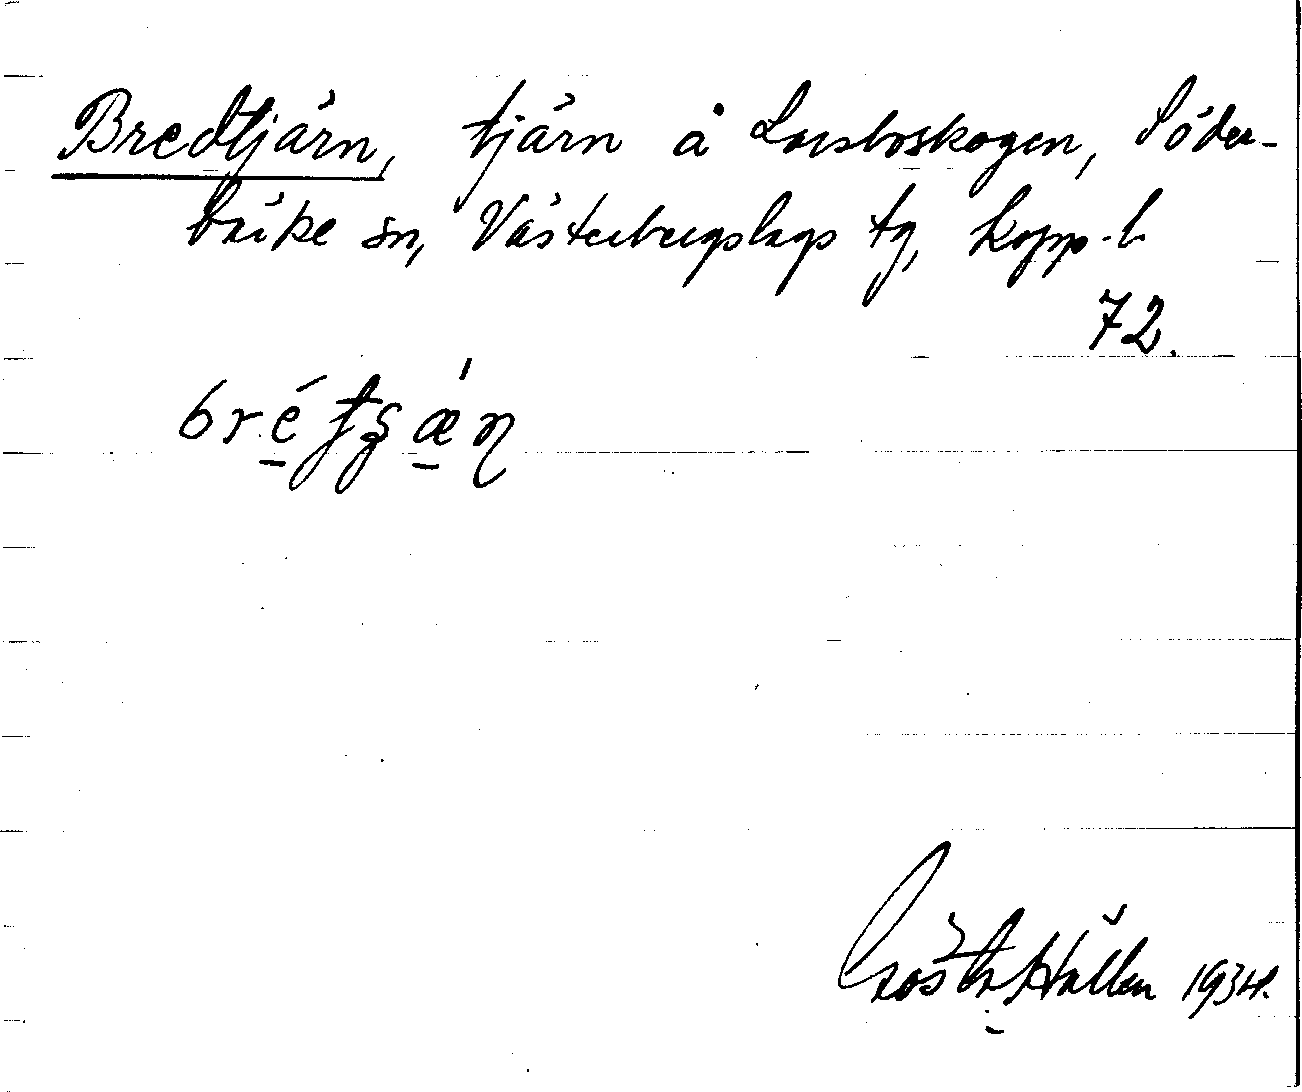 Bredtjärn, tjärn å Larsboskogen, Söder-
bärke sn, Västerbergslags tg, Kopp. l.
72.
Gösta Hallén 1934.